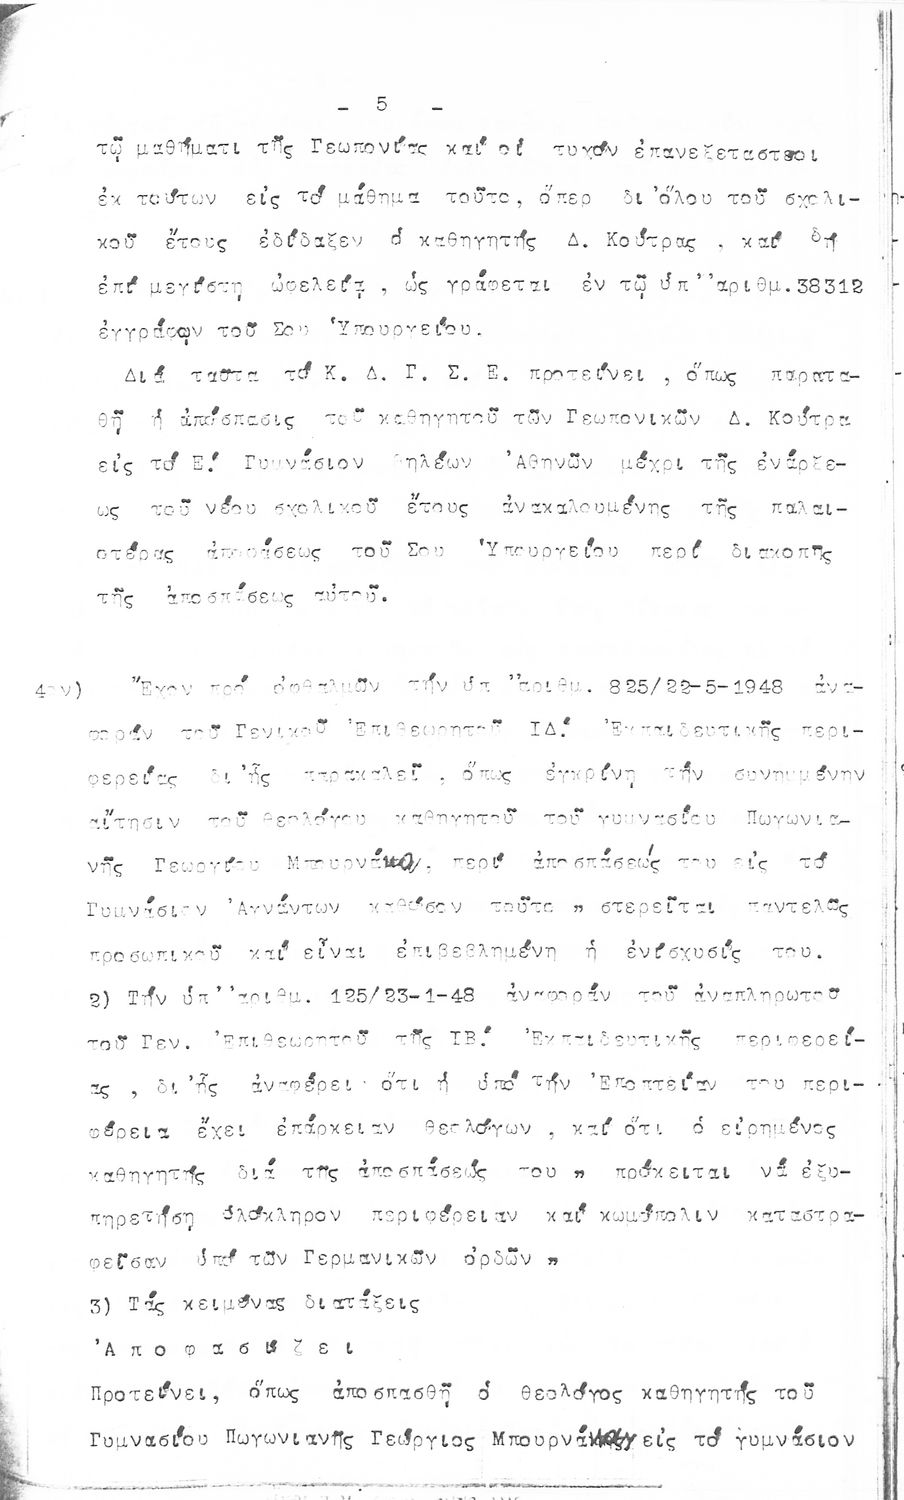 - 5 -
τῷ μαθήματι τῆς Γεωπονίας καί οἱ τυχόν ἐπανεξεταστέοι
ἐκ τούτων εἰς τό μάθημα τοῦτο, ὅπερ δι'ὅλου τοῦ σχολι-
κοῦ ἔτους ἐδίδαξεν ὁ καθηγητής Δ. Κούτρας , καί δή
ἐπί μεγίστη ὠφελεία , ὡς γράφεται ἐν τῷ ὑπ''αριθμ.38312
ἐγγράφῳν τοῦ Σου Ὑπουργείου.
Διά ταῦτα τό Κ. Δ. Γ. Σ. Ε. προτείνει , ὅπως παρατα-
θῇ ἡ ἀπόσπασις τοῦ καθηγητοῦ τῶν Γεωπονικῶν Δ. Κούτρα
εἰς τό Ε! Γυμνάσιον θηλέων Ἀθηνῶν μέχρι τῆς ἐνάρξε-
ως τοῦ νέου σχολικοῦ ἔτους ἀνακαλουμένης τῆς παλαι-
οτέρας ἀποφάσεως τοῦ Σου Ὑπουργείου περί διακοπῆς
τῆς ἀποσπάσεως αὐτοῦ.
4ον) Ἔχον πρό ὀφθαλμῶν τήν ὑπ'ἀριθμ. 825/22-5-1948 ἀνα-
φοράν τοῦ Γενικοῦ Ἐπιθεωρητοῦ ΙΔ! Ἐκπαιδευτικῆς περι-
φερείας δι'ἧς παρακαλεῖ , ὅπως ἐγκρίνῃ τήν συνημμένην
αἴτησιν τοῦ θεολόγου καθηγητοῦ τοῦ γυμνασίου Πωγωνια-
νῆς Γεωργίου Μπουρνάκα, περί ἀποσπάσεώς του εἰς τό
Γυμνάσιον Ἀγνάντων καθόσον τοῦτο " στερεῖται παντελῶς
προσωπικοῦ καί εἶναι ἐπιβεβλημένη ἡ ἐνίσχυσίς του.
2) Τήν ὑπ''αριθμ. 125/23-1-48 ἀναφοράν τοῦ ἀναπληρωτοῦ
τοῦ Γεν. Ἐπιθεωρητοῦ τῆς ΙΒ! Ἐκπαιδευτικῆς περιφερεί-
ας , δι'ἧς ἀναφέρει ὅτι ἡ ὑπό τήν Ἐποπτείαν του περι-
φέρεια ἔχει ἐπάρκειαν θεολόγων , καί ὅτι ὁ εἰρημένος
καθηγητής διά τῆς ἀποσπάσεώς του " πρόκειται νά ἐξυ-
πηρετήσῃ ὁλόκληρον περιφέρειαν καί κωμόπολιν καταστρα-
φεῖσαν ὑπό τῶν Γερμανικῶν ὀρδῶν "
3) Τάς κειμένας διατάξεις
Ἀ π ο φ α σ ί ζ ε ι
Προτείνει, ὅπως ἀποσπασθῇ ὁ θεολόγος καθηγητής τοῦ
Γυμνασίου Πωγωνιανῆς Γεώργιος Μπουρνάκας εἰς τό γυμνάσιον